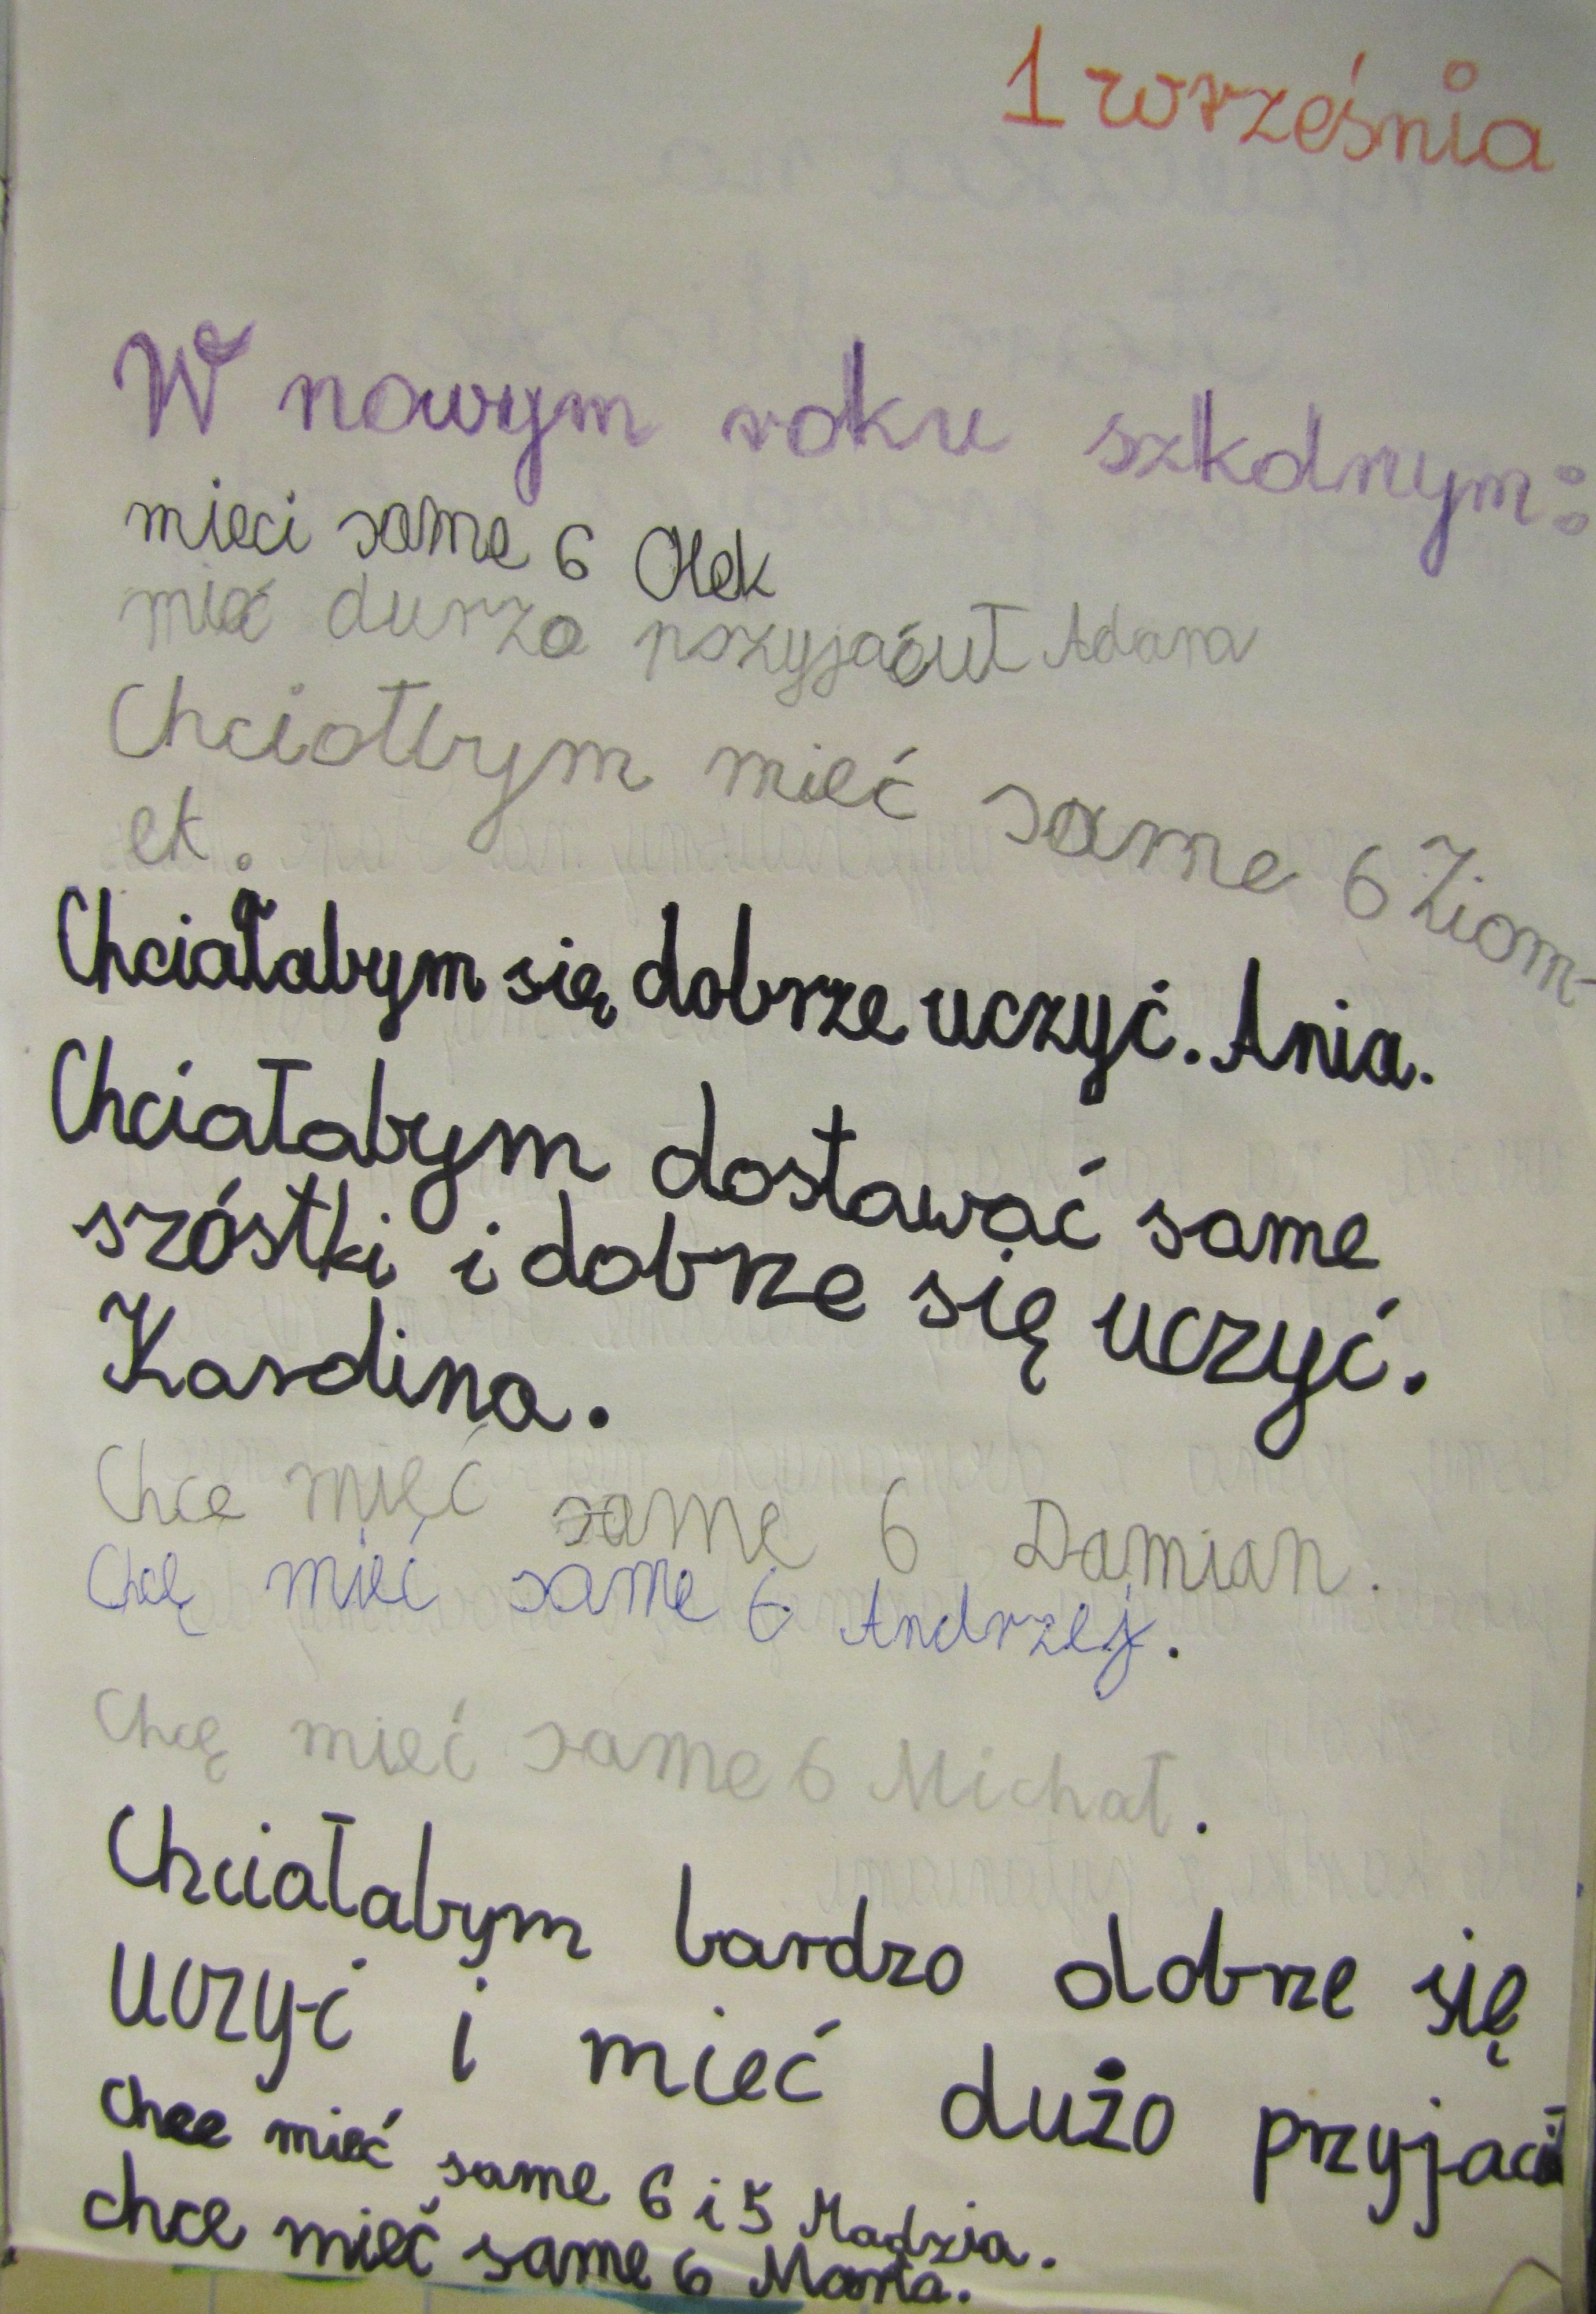 1 września
W nowym roku szkolnym:
mieci same 6 Olek
mieć durzo przyjaćuł Adam
Chciołbym mieć same 6 Ziom-
ek.
Chciałabym się dobrze uczyć. Ania.
Chciałabym dostawać same
szóstki i dobrze się uczyć.
Karolina.
Chce mieć same 6 Damian.
Chcę mieć same 6 Andrzej.
Chcę mieć same 6 Michał.
Chciałabym bardzo dobrze się
uczyć i mieć dużo przyjaciół
Chce mieć same 6 i 5 Madzia.
chce mieć same 6 Marta.